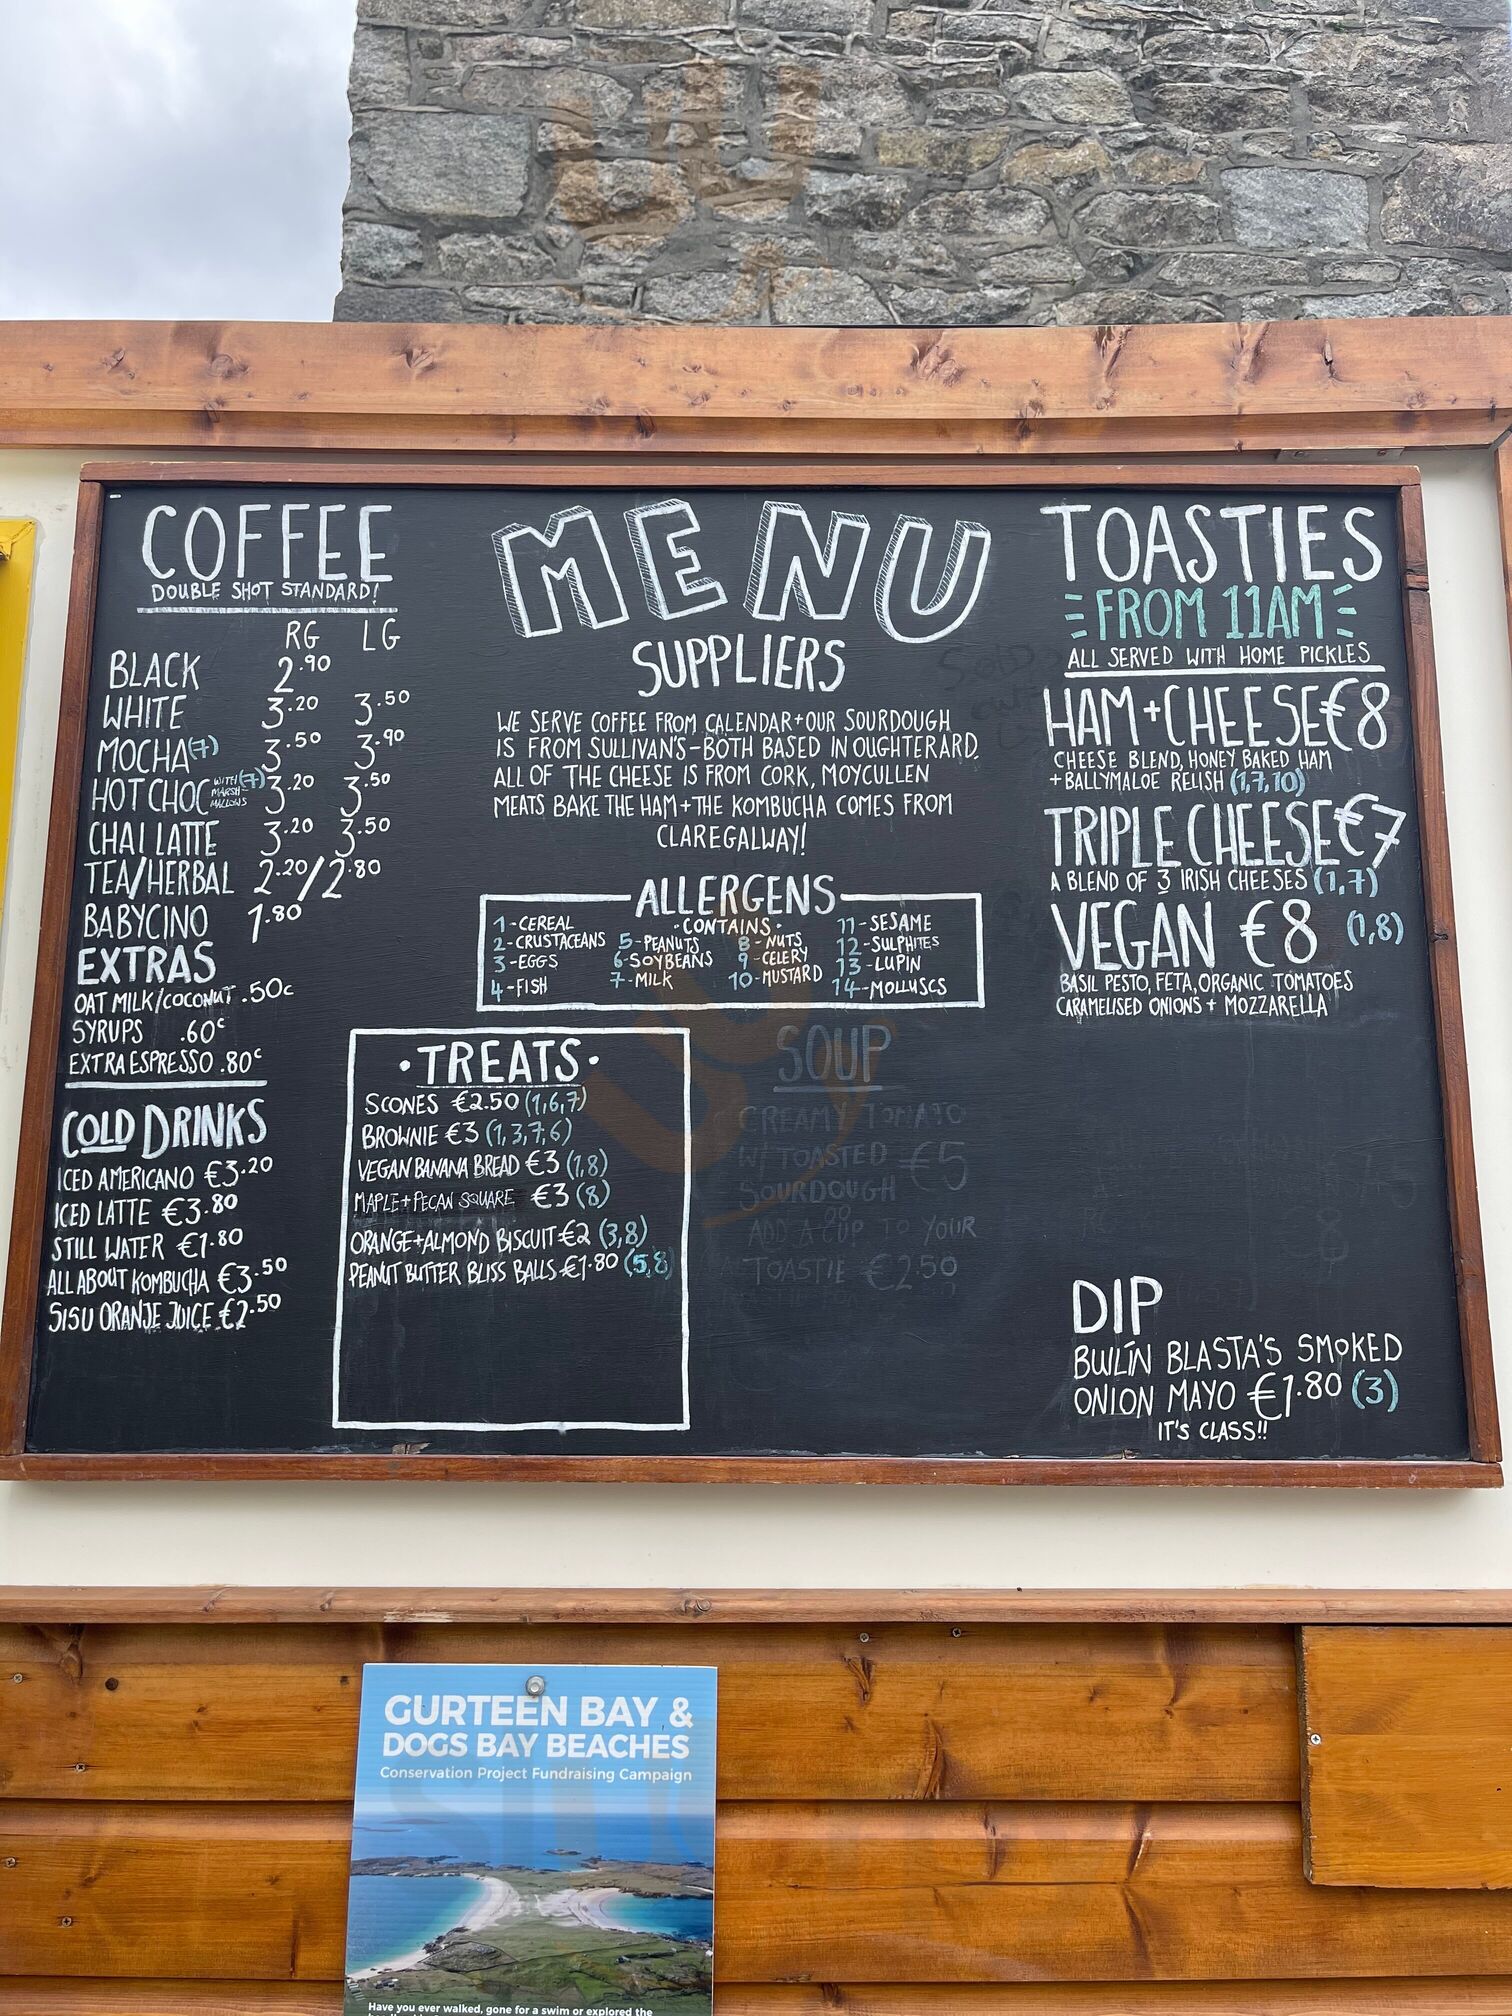 COFFEE
DOUBLE SHOT STANDARD!
RG LG
BLACK 2.90
WHITE 3.20 3.50
MOCHA (7) 3.50 3.90
HOT CHOC WITH MARSH-MALLOWS (7) 3.20 3.50
CHAI LATTE 3.20 3.50
TEA/HERBAL 2.20/2.80
BABYCINO 1.80
EXTRAS
OAT MILK/COCONUT .50c
SYRUPS .60c
EXTRA ESPRESSO .80c
COLD DRINKS
ICED AMERICANO €3.20
ICED LATTE €3.80
STILL WATER €1.80
ALL ABOUT KOMBUCHA €3.50
SISU ORANJE JUICE €2.50
MENU
SUPPLIERS
WE SERVE COFFEE FROM CALENDAR + OUR SOURDOUGH
IS FROM SULLIVAN'S - BOTH BASED IN OUGHTERARD.
ALL OF THE CHEESE IS FROM CORK, MOYCULLEN
MEATS BAKE THE HAM + THE KOMBUCHA COMES FROM
CLAREGALWAY!
ALLERGENS
·CONTAINS·
1-CEREAL
2-CRUSTACEANS
3-EGGS
4-FISH
5-PEANUTS
6-SOYBEANS
7-MILK
8-NUTS
9-CELERY
10-MUSTARD
11-SESAME
12-SULPHITES
13-LUPIN
14-MOLLUSCS
·TREATS·
SCONES €2.50 (1,6,7)
BROWNIE €3 (1,3,7,6)
VEGAN BANANA BREAD €3 (1,8)
MAPLE + PECAN SQUARE €3 (8)
ORANGE + ALMOND BISCUIT €2 (3,8)
PEANUT BUTTER BLISS BALLS €1.80 (5,8)
SOUP
CREAMY TOMATO
W/ TOASTED €5
SOURDOUGH
ADD A CUP TO YOUR
TOASTIE €2.50
TOASTIES
FROM 11AM
ALL SERVED WITH HOME PICKLES
HAM + CHEESE €8
CHEESE BLEND, HONEY BAKED HAM
+ BALLYMALOE RELISH (1,7,10)
TRIPLE CHEESE €7
A BLEND OF 3 IRISH CHEESES (1,7)
VEGAN €8 (1,8)
BASIL PESTO, FETA, ORGANIC TOMATOES
CARAMELISED ONIONS + MOZZARELLA
DIP
BUILÍN BLASTA'S SMOKED
ONION MAYO €1.80 (3)
IT'S CLASS!!
GURTEEN BAY &
DOGS BAY BEACHES
Conservation Project Fundraising Campaign
Have you ever walked, gone for a swim or explored the